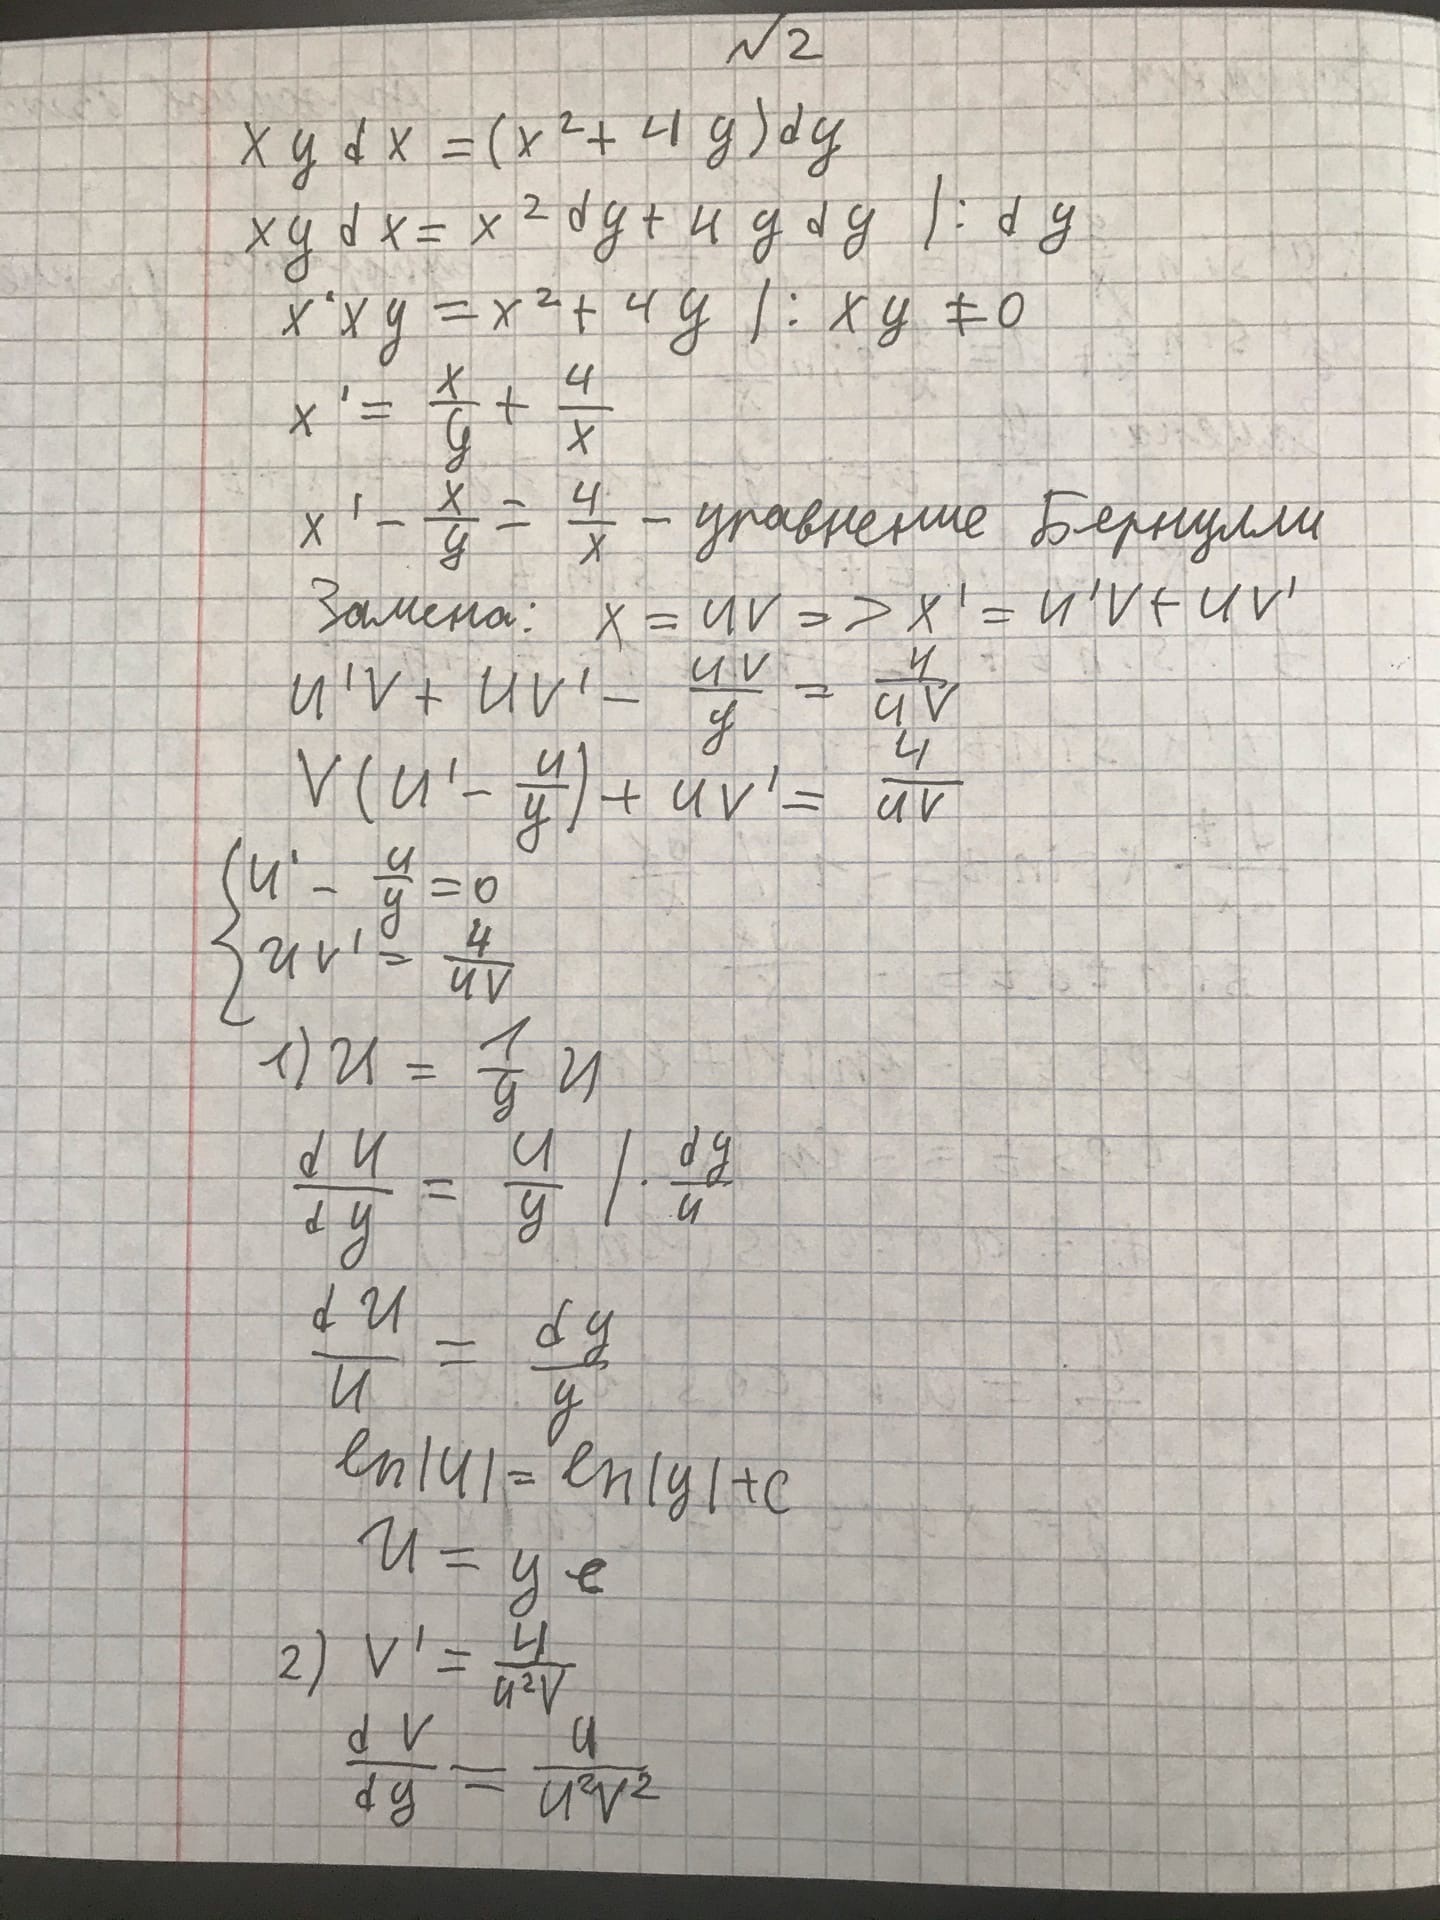 √2
xydx=(x²+4y)dy
xydx=x²dy+4ydy |: dy
x'xy=x²+4y |: xy≠0
x'= x/y + 4/x
x'- x/y = 4/x - уравнение Бернулли
Замена: x=uv => x'=u'v+uv'
u'v+uv'- uv/y = 4/uv
v(u'- u/y)+uv'= 4/uv
{u'- u/y =0
uv'= 4/uv
1) u = 1/y u
du/dy = u/y |· dy/u
du/u = dy/y
ln|u|=ln|y|+c
u=ye
2) v'= 4/u²v
dv/dy = 4/u²v²